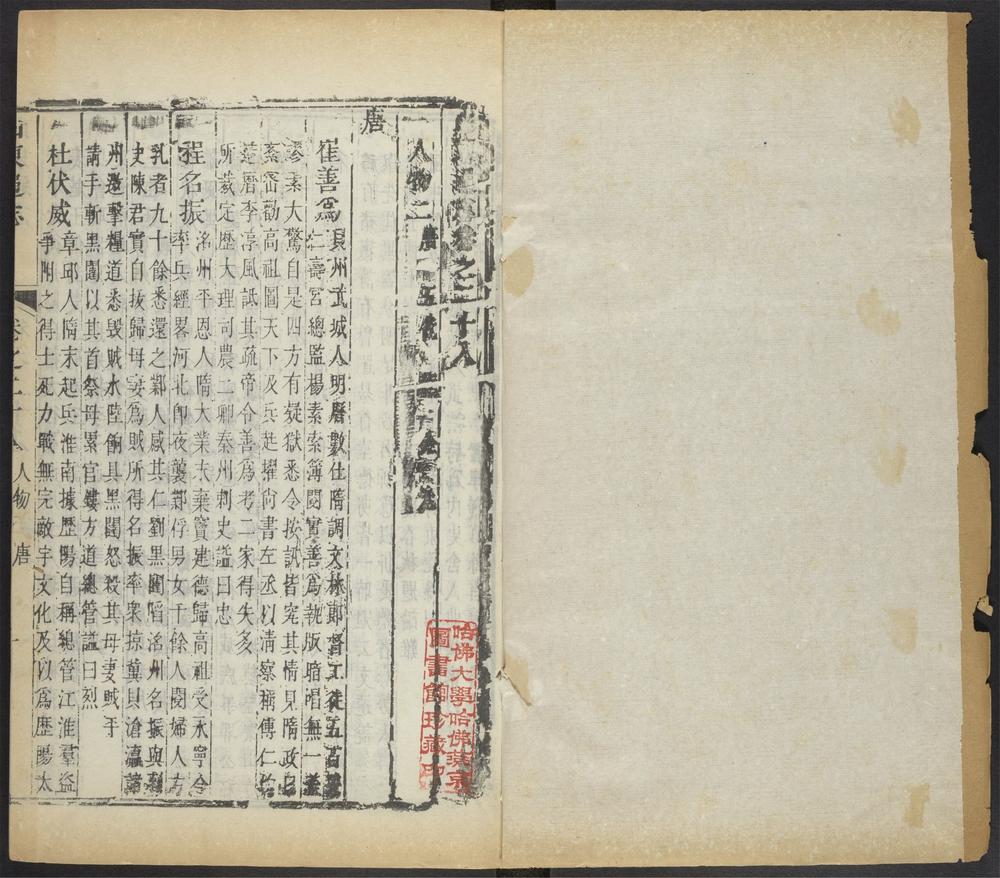 卷之二十八
人物二 唐 五代
唐
崔善爲 貝州武城人明曆數仕隋調文林郎督工徒五百營
仁壽宮總監楊素索簿閱實善爲執版暗唱無一差
謬素大驚自是四方有疑獄悉令按訊皆究其情見隋政日
紊密勸高祖圖天下及兵起擢尚書左丞以清察稱傅仁均
造曆李淳風詆其疏帝令善爲考二家得失多
所裁定歷大理司農二卿秦州刺史諡曰忠
程名振 洺州平恩人隋大業末棄竇建德歸高祖受永寧令
率兵經畧河北即夜襲鄴俘男女千餘人閱婦人方
乳者九十餘悉還之鄴人感其仁劉黑闥陷洺州名振與刺
史陳君實自拔歸母妻爲賊所得名振率衆掠冀貝滄瀛諸
州邀擊糧道悉毀賊水陸餉具黑闥怒殺其母妻賊平
請手斬黑闥以其首祭母累官鏤方道總管諡曰烈
杜伏威 章邱人隋末起兵淮南據歷陽自稱總管江淮羣盜
爭附之得士死力戰無完敵宇文化及以爲歷陽太
山東通志 卷之二十八 人物 唐 一
哈佛大學哈佛燕京
圖書館珍藏印